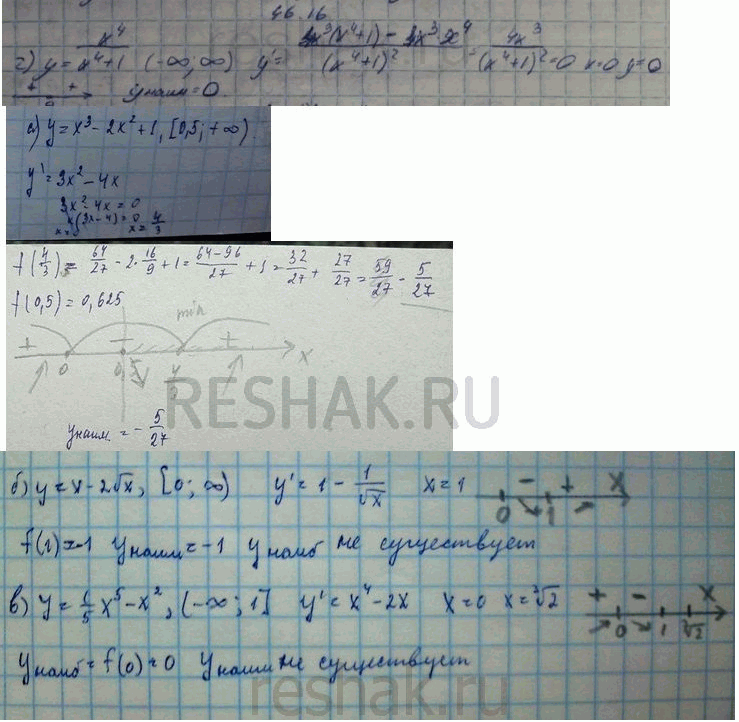 46.16
г) y = x⁴/(x⁴+1) (-∞; ∞) y' = (4x³(x⁴+1) - 4x³·x⁴)/(x⁴+1)² = 4x³/(x⁴+1)² = 0 x=0 y=0
+ + yнаим = 0
0
а) y = x³ - 2x² + 1, [0,5; +∞).
y' = 3x² - 4x
3x² - 4x = 0
x(3x-4) = 0
x = 4/3
f(4/3) = 64/27 - 2·16/9 + 1 = (64-96)/27 + 1 = 32/27 + 27/27 = 59/27 - 5/27
f(0,5) = 0,625
min
+ - +
0 4/3 x
yнаим. = - 5/27
RESHAK.RU
б) y = x - 2√x, [0; ∞) y' = 1 - 1/√x x = 1 - + x
0 1
f(1) = -1 yнаим = -1 yнаиб не существует
в) y = 1/5 x⁵ - x², (-∞; 1] y' = x⁴ - 2x x = 0 x = ³√2 + - x
0 1 ³√2
yнаиб = f(0) = 0 yнаим не существует
reshak.ru